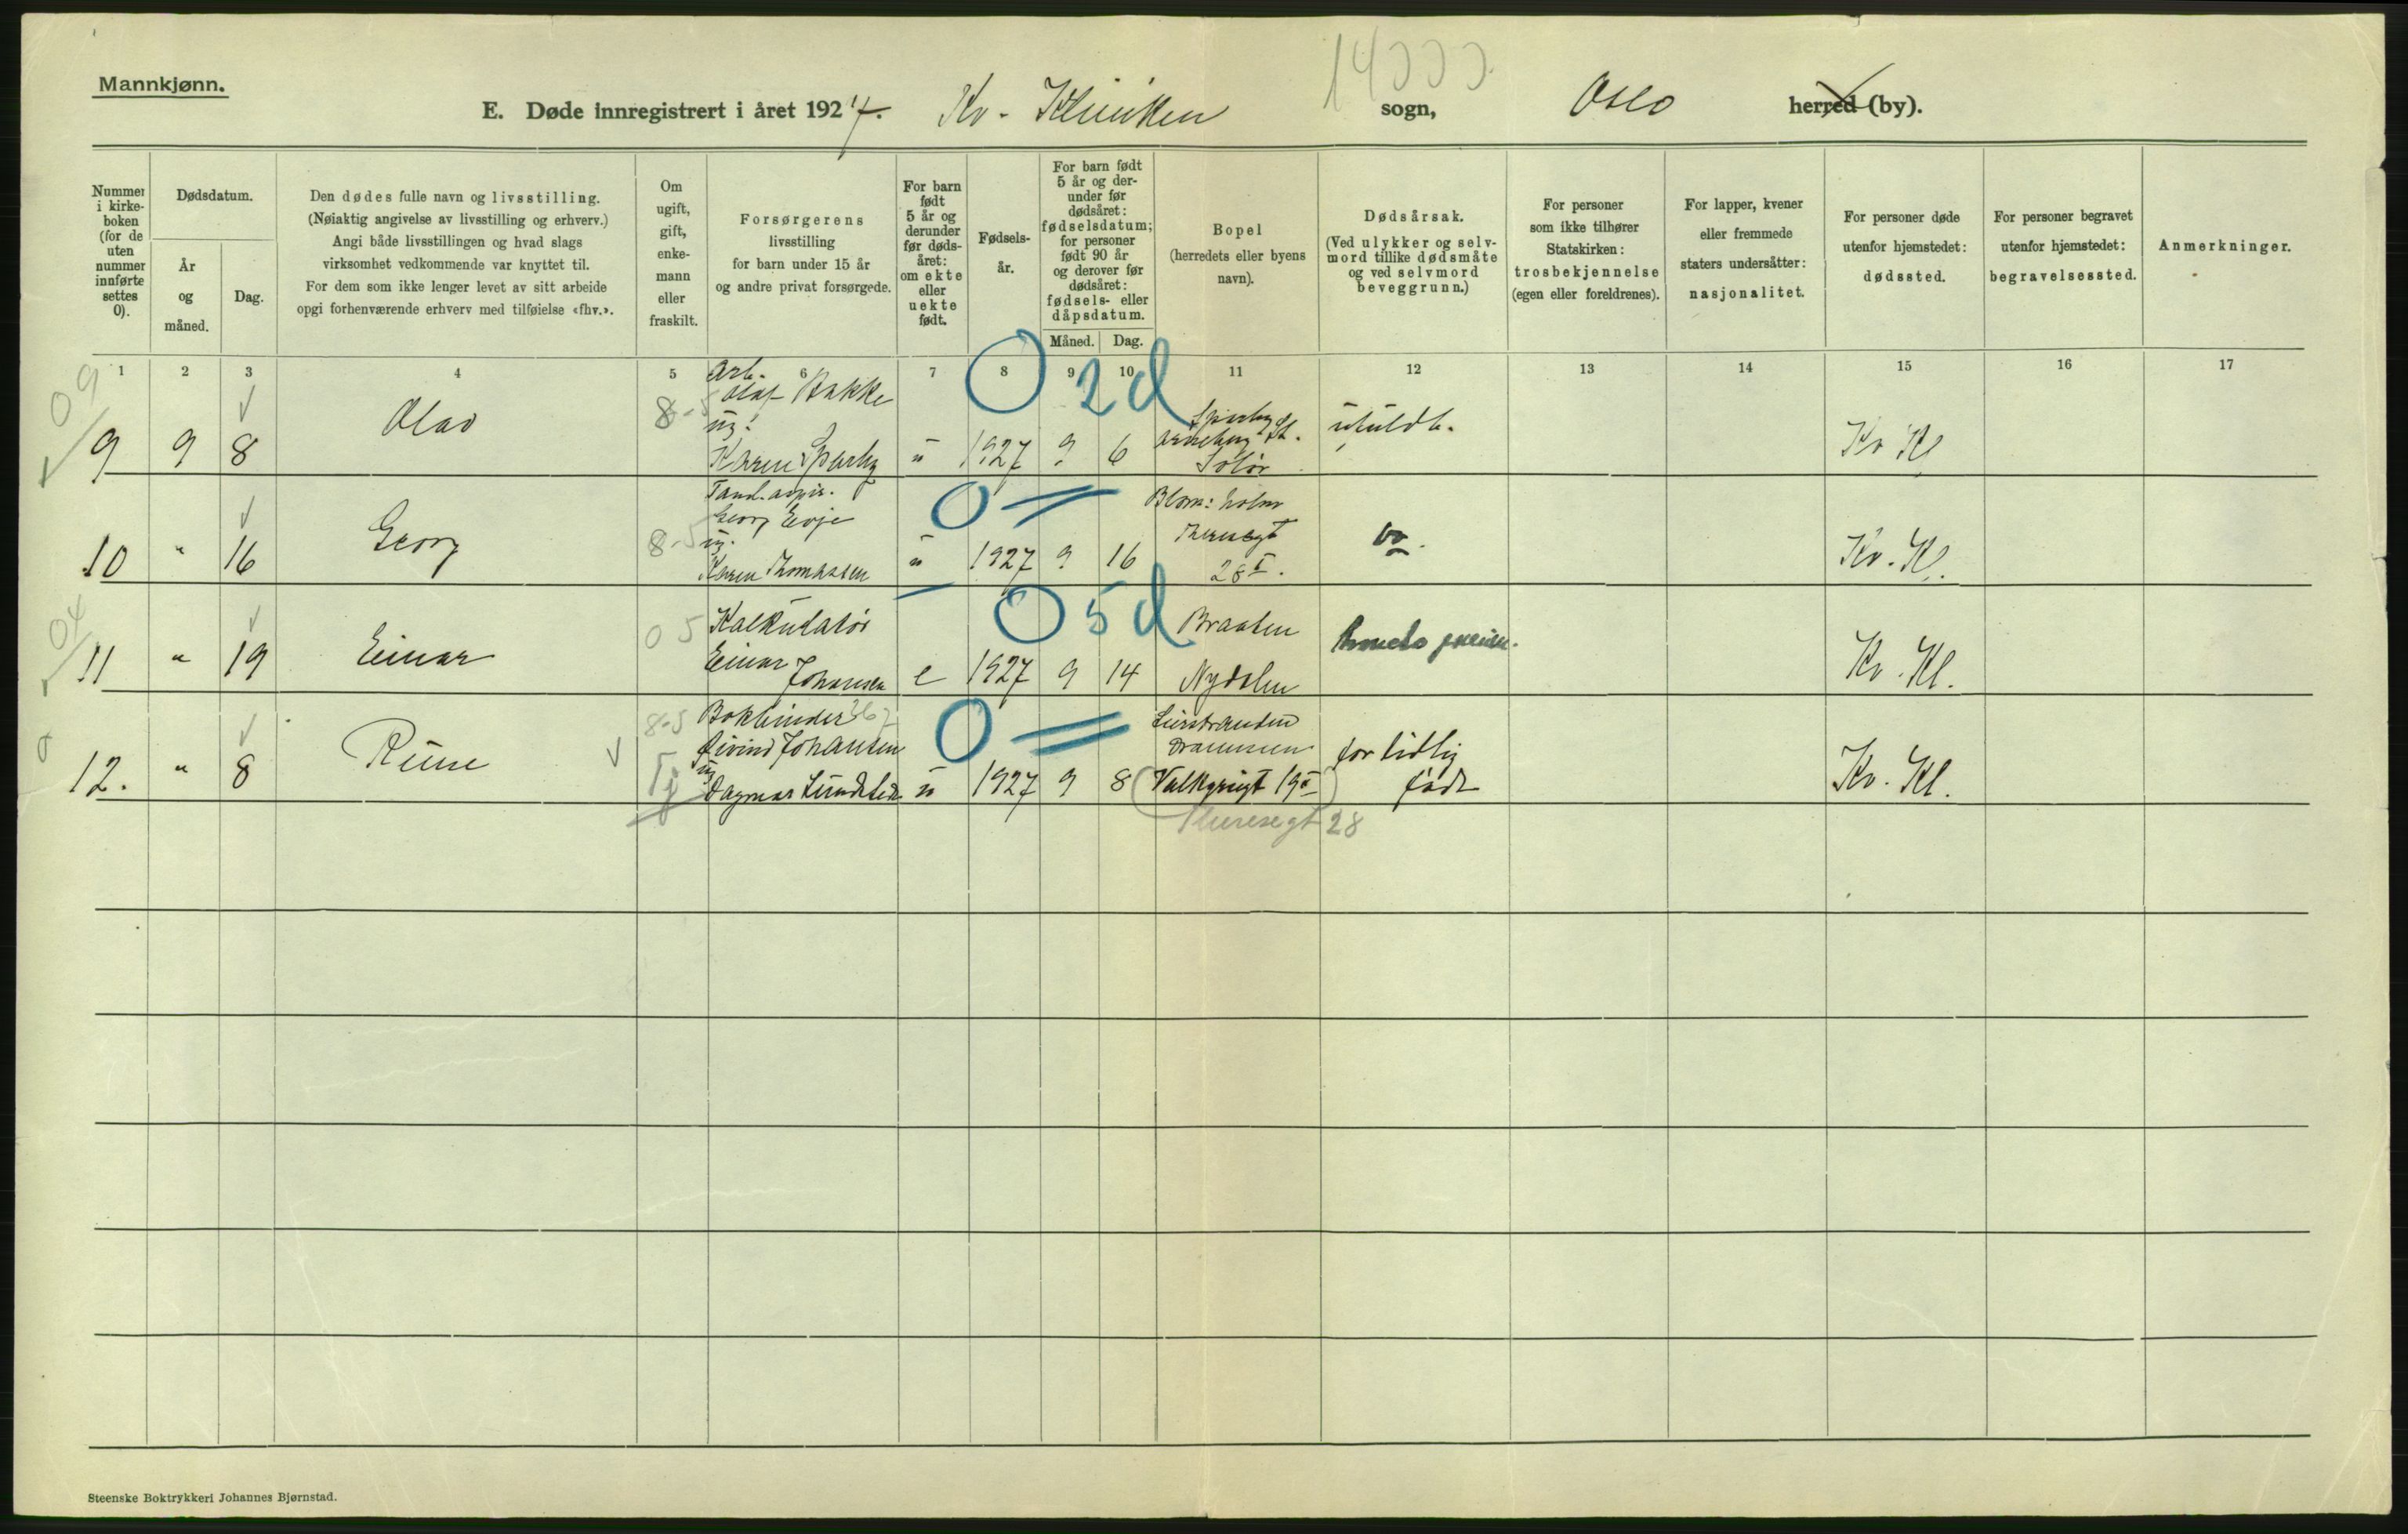 Mannkjønn.
E. Døde innregistrert i året 1927. Kv - Kliniken sogn, Oslo herred (by).
Nummer i kirke-boken (for de uten nummer innførte settes 0).
Dødsdatum.
År og måned.
Dag.
Den dødes fulle navn og livsstilling.
(Nøiaktig angivelse av livsstilling og erhverv.)
Angi både livsstillingen og hvad slags
virksomhet vedkommende var knyttet til.
For dem som ikke lenger levet av sitt arbeide
opgi forhenværende erhverv med tilføielse «fhv.».
Om
ugift,
gift,
enke-
mann
eller
fraskilt.
Forsørgerens
livsstilling
for barn under 15 år
og andre privat forsørgede.
For barn
født
5 år og
derunder
før døds-
året:
om ekte
eller
uekte
født.
Fødsels-
år.
For barn født
5 år og der-
under før
dødsåret:
fødselsdatum;
for personer
født 90 år
og derover før
dødsåret:
fødsels- eller
dåpsdatum.
Måned. Dag.
Bopel
(herredets eller byens
navn).
Dødsårsak.
(Ved ulykker og selv-
mord tillike dødsmåte
og ved selvmord
beveggrunn.)
For personer
som ikke tilhører
Statskirken:
trosbekjennelse
(egen eller foreldrenes).
For lapper, kvener
eller fremmede
staters undersåtter:
nasjonalitet.
For personer døde
utenfor hjemstedet:
dødssted.
For personer begravet
utenfor hjemstedet:
begravelsessted.
Anmerkninger.
1 2 3 4 5 6 7 8 9 10 11 12 13 14 15 16 17
09
0 2d
Arb.
Olaf Bakke
ug.
9 9 8 Olav 8-5 Karen Sparby u 1927 9 6 Solør Kv Kl
0 =
Georg Evje
ug.
10 " 16 Georg 8-5 Karen Thomassen u 1927 9 16 Theresegt 28 I. do. Kv. Kl.
04
0 5d
Kalkulatør
Einar
Johansen
11 " 19 Einar 05 e 1927 9 14 Braaten
Nydalen
Kv. Kl.
0 =
Bokbinder 367
Øivind Johansen
ug
12. " 8 Rune 8-5 Dagmar u 1927 9 8 Lierstranden
Drammen
(Valkyriegt 19 II)
for tidlig
født
Kv. Kl.
Theresegt 28
Steenske Boktrykkeri Johannes Bjørnstad.